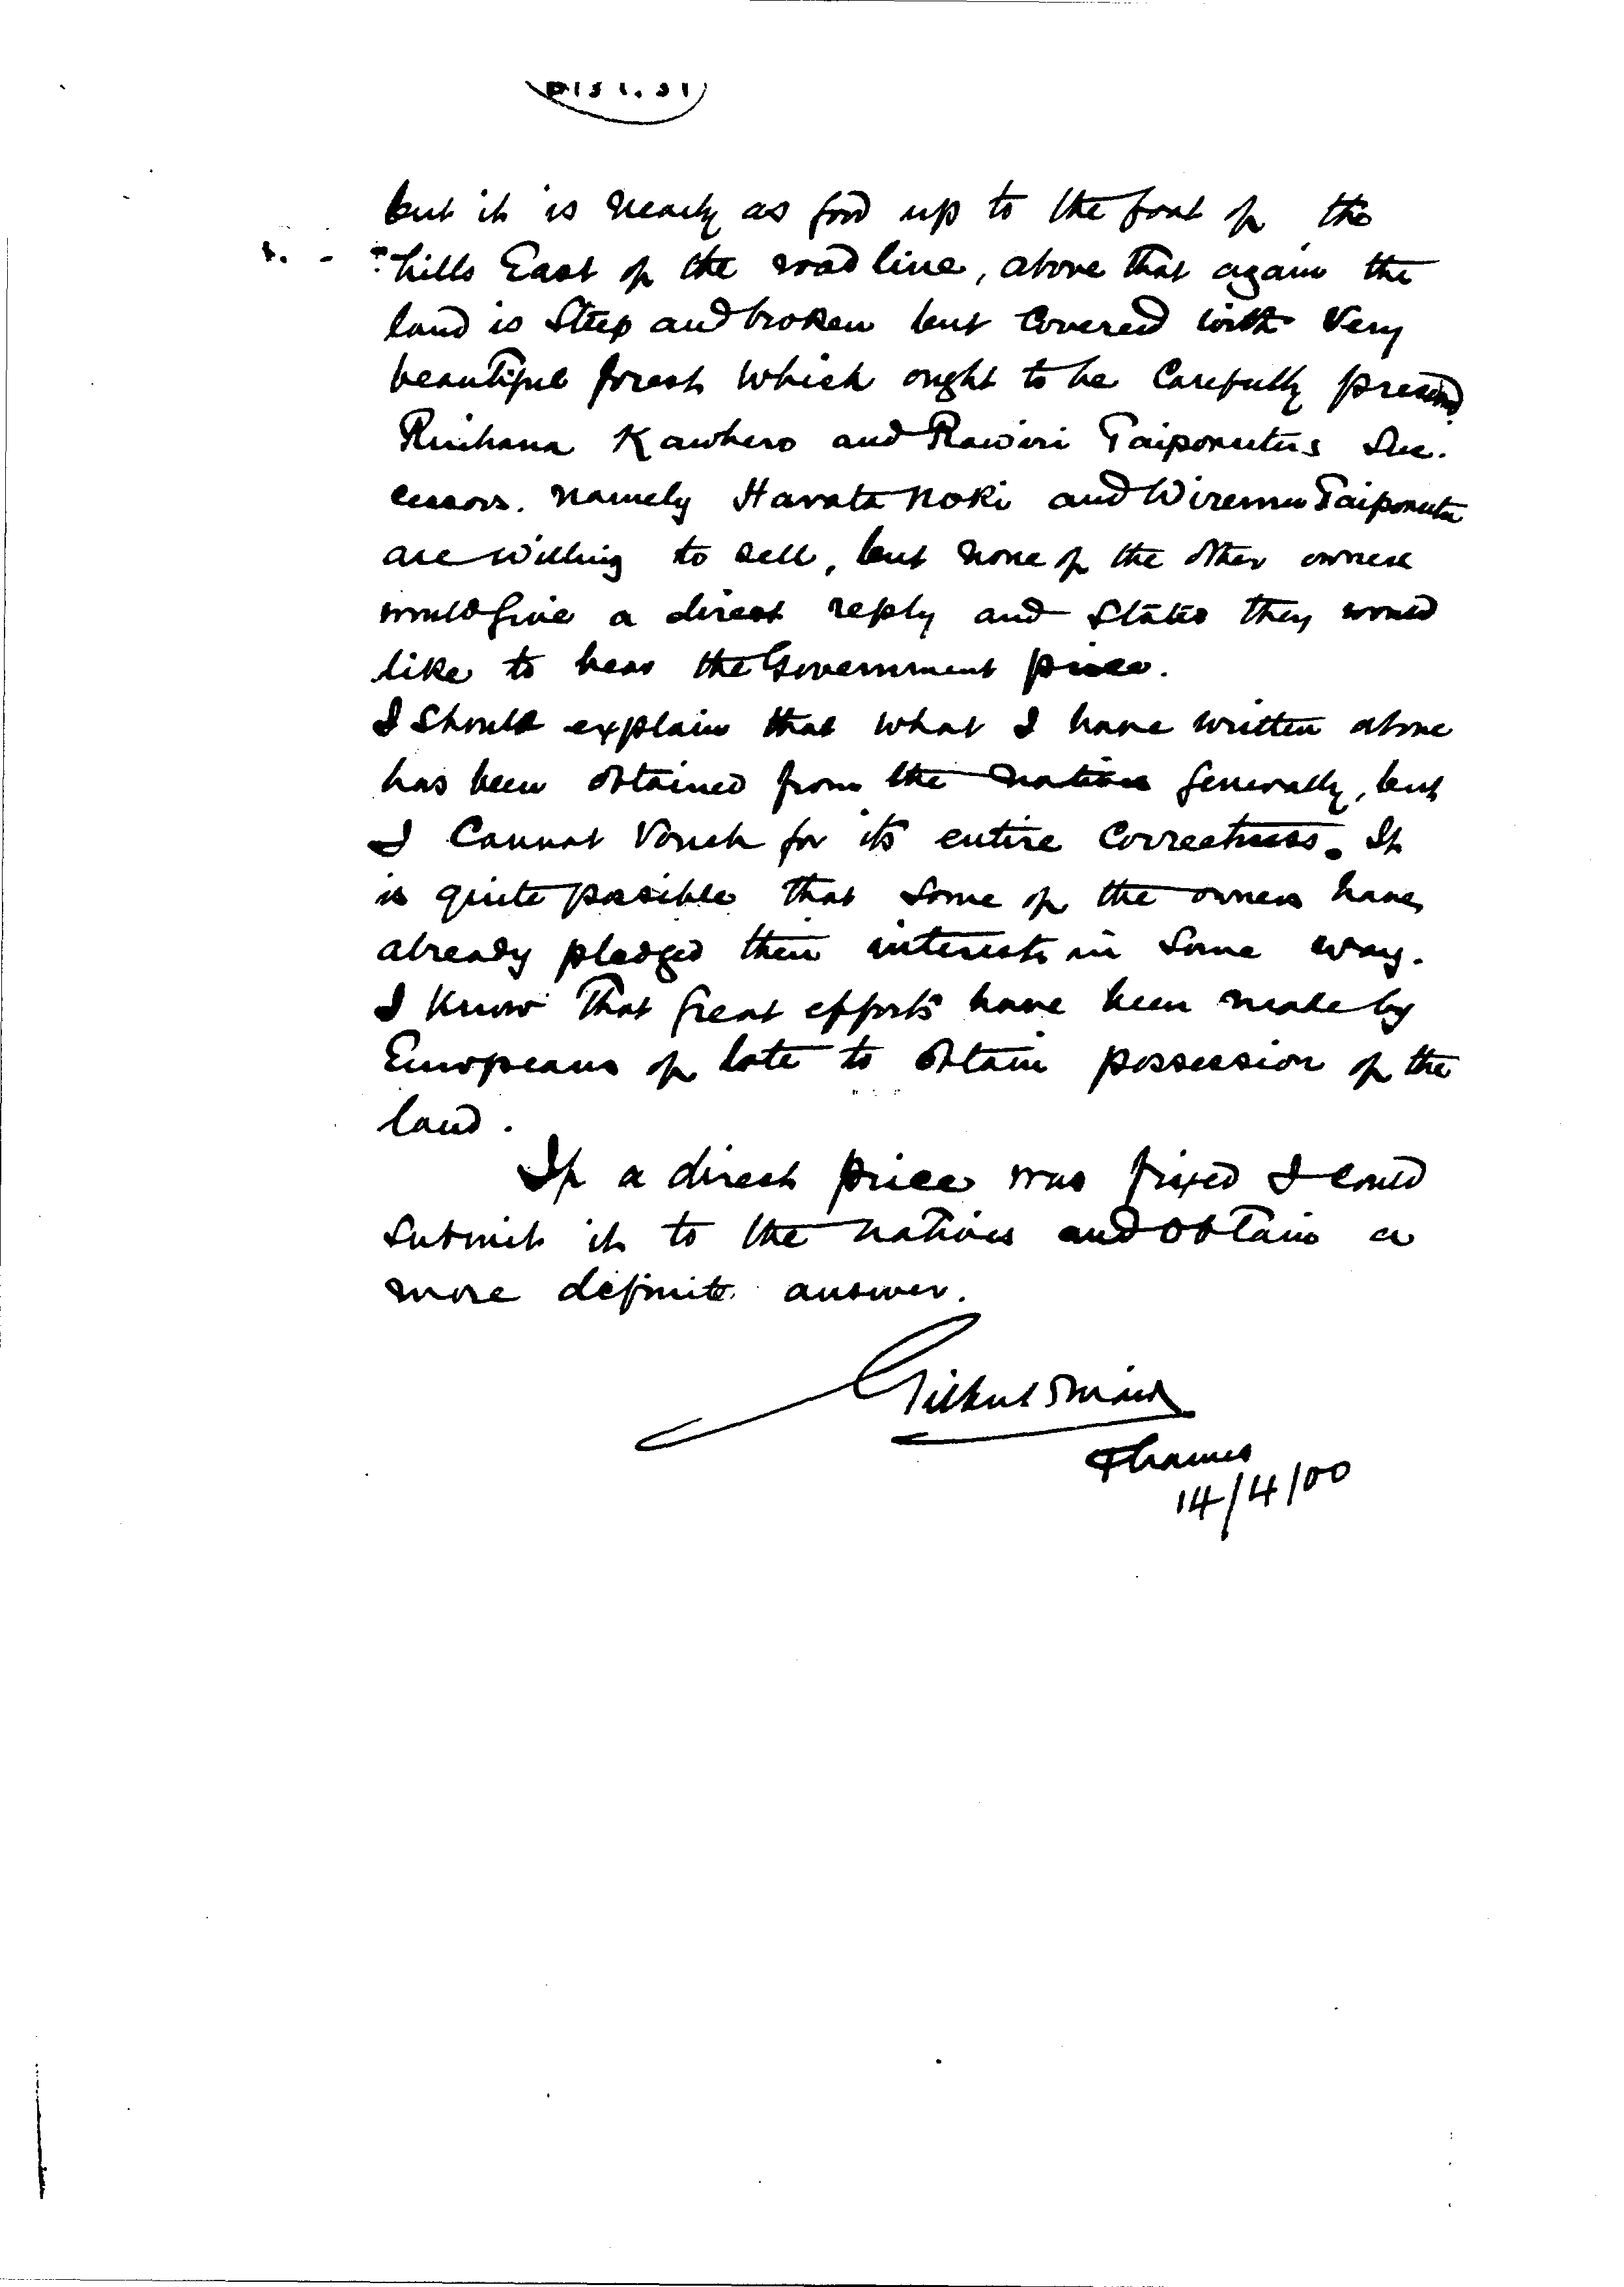 but it is nearly as good up to the foot of the
hills East of the road line, above that again the
land is steep and broken but covered with very
beautiful forest which ought to be carefully preserved
Kawhero and Rawiri Taiponutus Suc-
cessors. namely Harata Noki and Wiremu Taiponutu
are willing to sell, but none of the other owners
would give a direct reply and states they would
like to hear the Government price.
I should explain that what I have written above
has been obtained from the natives generally, but
I cannot vouch for its entire correctness. It
is quite possible that some of the owners have
already pledged their interests in some way.
I know that great efforts have been made by
Europeans of late to obtain possession of the
land.
If a direct price was fixed I could
submit it to the natives and obtain a
more definite answer.
Gilbert Mair
Thames
14/4/00